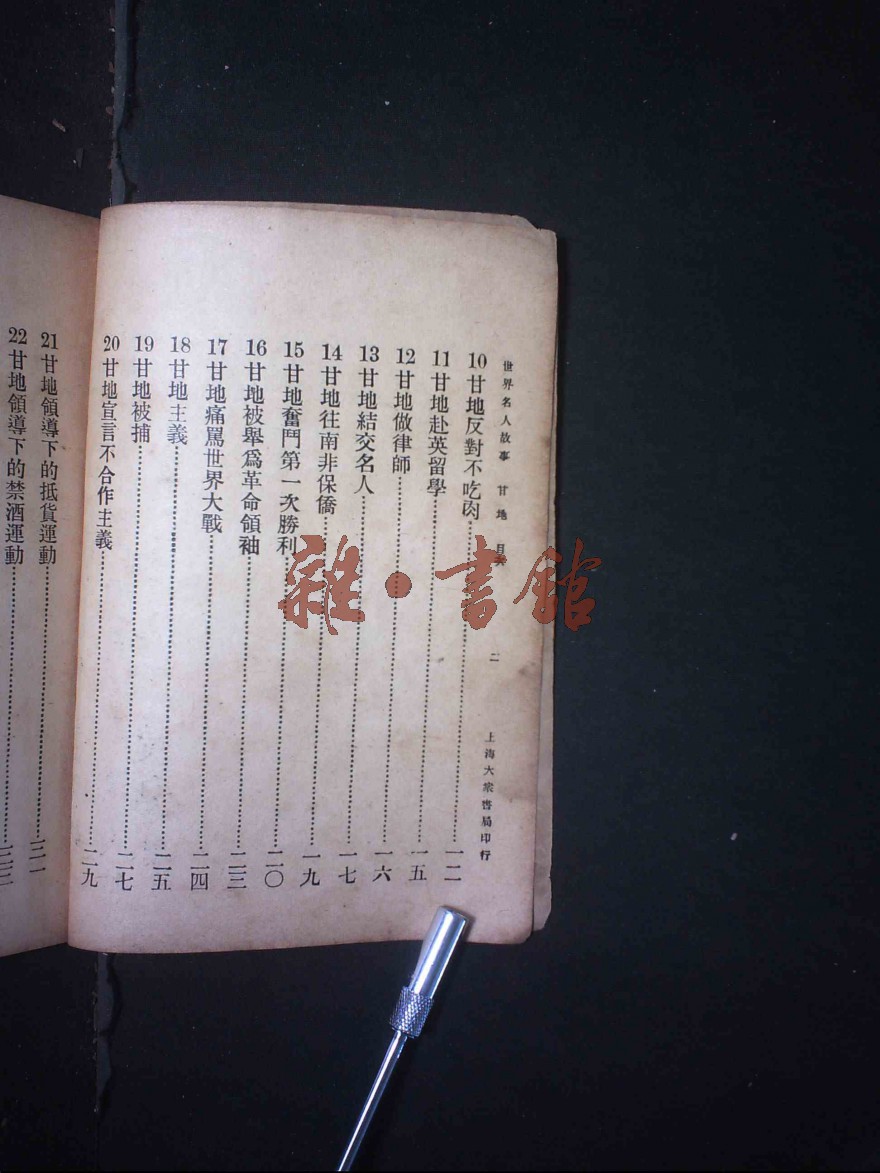 世界名人故事 甘地 目錄 二 上海大衆書局印行
10甘地反對不吃肉……一二
11甘地赴英留學……一五
12甘地做律師……一六
13甘地結交名人……一七
14甘地往南非保僑……一九
15甘地奮鬥第一次勝利……二〇
16甘地被舉爲革命領袖……二三
17甘地痛罵世界大戰……二四
18甘地主義……二五
19甘地被捕……二七
20甘地宣言不合作主義……二九
21甘地領導下的抵貨運動……三一
22甘地領導下的禁酒運動……三三
雜·書館